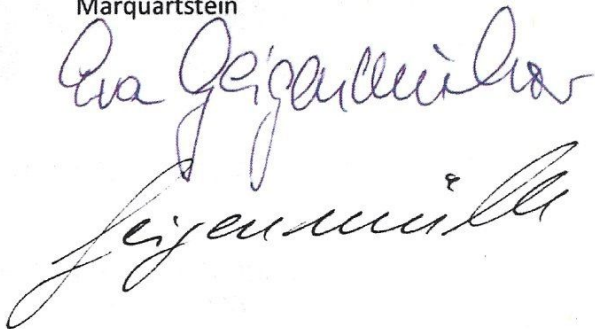 Marquartstein
Eva Geigenmüller
Geigenmüller